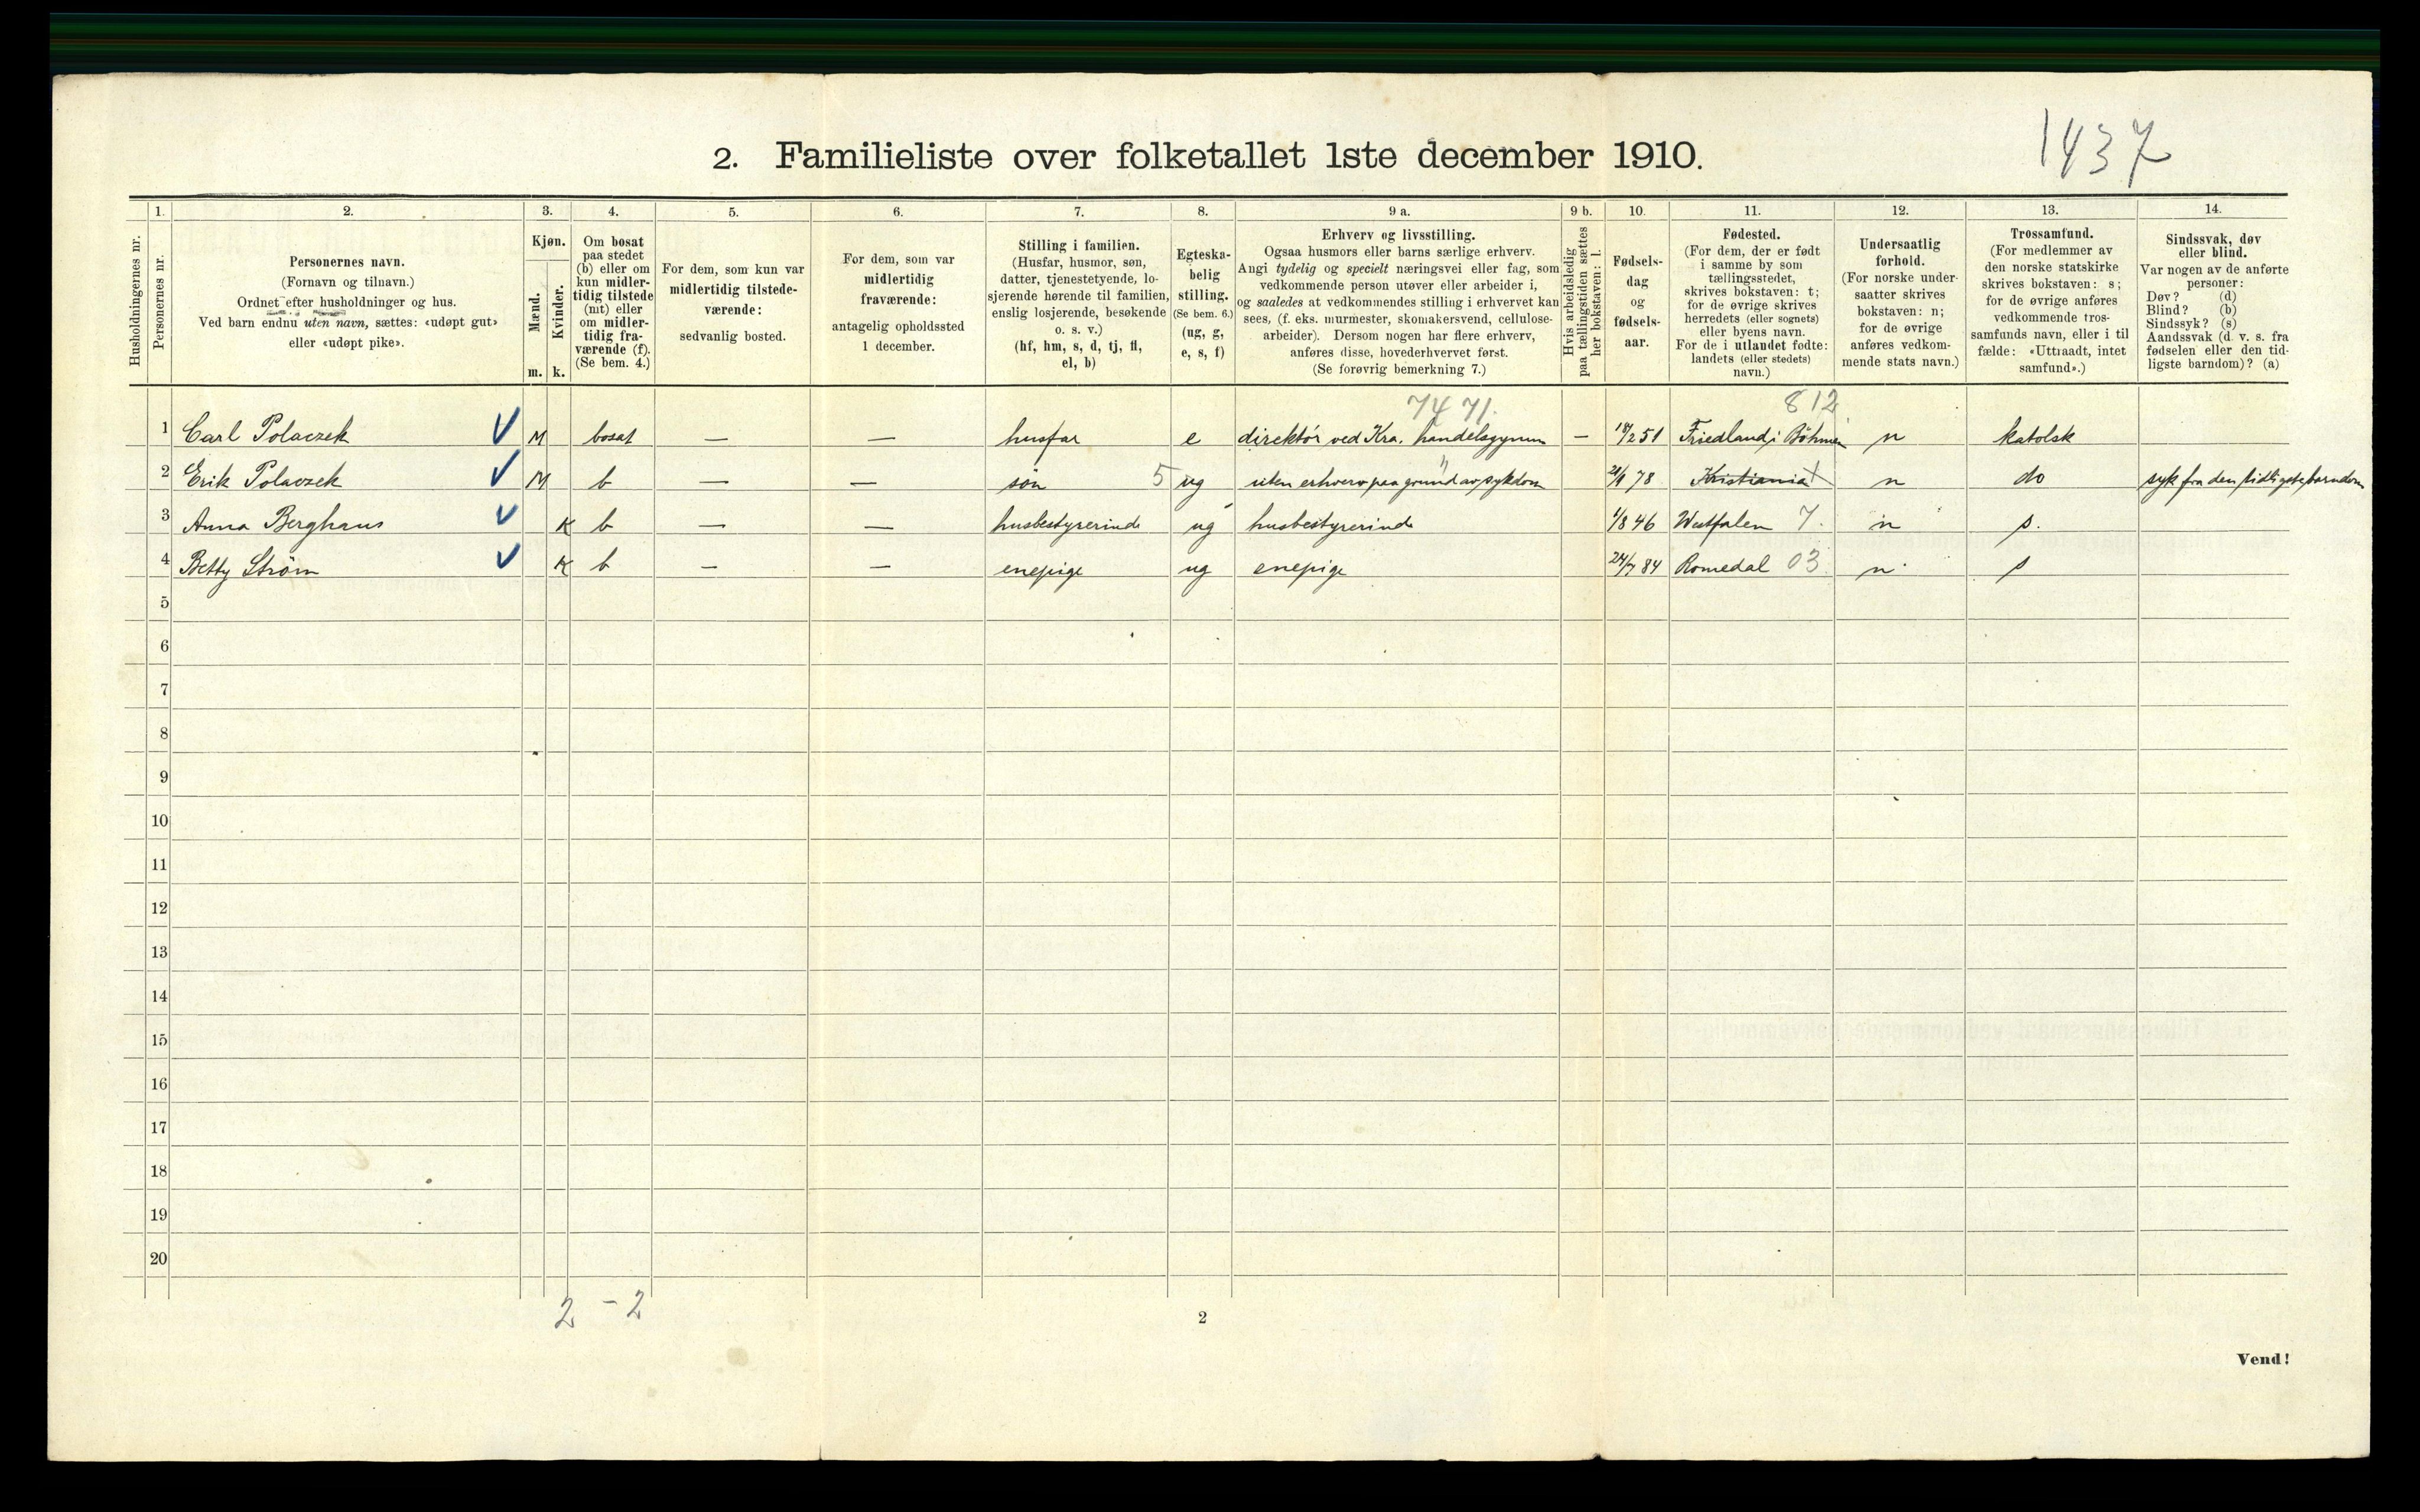 1437
2. Familieliste over folketallet 1ste december 1910.
Husholdningernes nr.
1.
Personernes nr.
2.
Personernes navn.
(Fornavn og tilnavn.)
Ordnet efter husholdninger og hus.
Ved barn endnu uten navn, sættes: «udøpt gut»
eller «udøpt pike».
3.
Kjøn.
Mænd.
Kvinder.
m. k.
4.
Om bosat
paa stedet
(b) eller om
kun midler-
tidig tilstede
(mt) eller
om midler-
tidig fra-
værende (f).
(Se bem. 4.)
5.
For dem, som kun var
midlertidig tilstede-
værende:
sedvanlig bosted.
6.
For dem, som var
midlertidig
fraværende:
antagelig opholdssted
1 december.
7.
Stilling i familien.
(Husfar, husmor, søn,
datter, tjenestetyende, lo-
sjerende hørende til familien,
enslig losjerende, besøkende
o. s. v.)
(hf, hm, s, d, tj, fl,
el, b)
8.
Egteska-
belig
stilling.
(Se bem. 6.)
(ug, g,
e, s, f)
9 a.
Erhverv og livsstilling.
Ogsaa husmors eller barns særlige erhverv.
Angi tydelig og specielt næringsvei eller fag, som
vedkommende person utøver eller arbeider i,
og saaledes at vedkommendes stilling i erhvervet kan
sees, (f. eks. murmester, skomakersvend, cellulose-
arbeider). Dersom nogen har flere erhverv,
anføres disse, hovederhvervet først.
(Se forøvrig bemerkning 7.)
9 b.
Hvis arbeidsledig
paa tællingstiden sættes
her bokstaven: l.
10.
Fødsels-
dag
og
fødsels-
aar.
11.
Fødested.
(For dem, der er født
i samme by som
tællingsstedet,
skrives bokstaven: t;
for de øvrige skrives
herredets (eller sognets)
eller byens navn.
For de i utlandet fødte:
landets (eller stedets)
navn.)
12.
Undersaatlig
forhold.
(For norske under-
saatter skrives
bokstaven: n;
for de øvrige
anføres vedkom-
mende stats navn.)
13.
Trossamfund.
(For medlemmer av
den norske statskirke
skrives bokstaven: s;
for de øvrige anføres
vedkommende tros-
samfunds navn, eller i til
fælde: «Uttraadt, intet
samfund».)
14.
Sindssvak, døv
eller blind.
Var nogen av de anførte
personer:
Døv? (d)
Blind? (b)
Sindssyk? (s)
Aandssvak (d. v. s. fra
fødselen eller den tid-
ligste barndom)? (a)
7471. 812
1 Carl Polaczek M bosat — — husfar e direktör ved Kra. handelsgymn — 18/2 51 Friedland i Böhmen n katolsk
2 Erik Polaczek M b — — sön 5 ug uten erhverv paa grund av sykdom 78 Kristiania t n do syk fra den tidligste barndom
3 Anna Berghaus K b — — husbestyrerinde ug husbestyrerinde 1/8 46 Westfalen 7. n s.
4 Betty Ström K b — — enepige ug enepige 24/7 84 Romedal 03 n s
5
6
7
8
9
10
11
12
13
14
15
16
17
18
19
20
2 - 2
2
Vend!